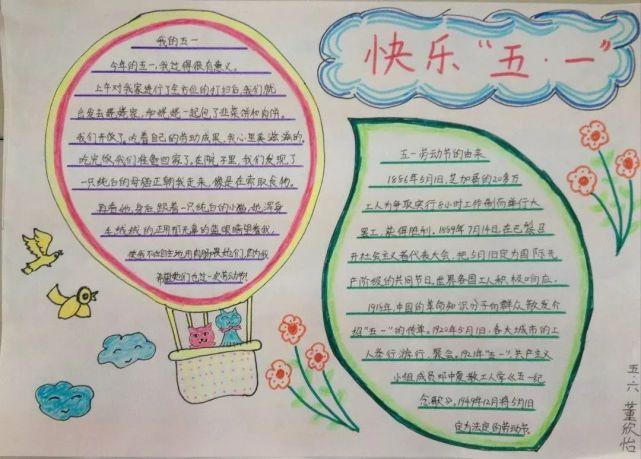 快乐“五·一”
我的五一
今年的五一,我过得很有意义。
上午对我家进行了全方位的打扫后,我们就
出发去姥姥家,和姥姥一起包了韭菜饼和肉饼。
我们开饭了,吃着自己的劳动成果,我心里美滋滋的。
吃完饭,我们准备回家了。在院子里,我们发现了
一只纯白的母猫正朝我走来,像是在索取食物。
再看她身后,跟着一只纯白的小猫,她浑身
毛绒绒的,正用那无辜的蓝眼睛望着我。
使我不由自主地用肉饼喂她们,
希望她们也过一次劳动节!
五一劳动节的由来
1886年5月1日,芝加哥的20多万
工人为争取实行8小时工作制而举行大
罢工,获得胜利。1889年7月14日,在巴黎召
开社会主义者代表大会,把5月1日定为国际无
产阶级的共同节日,世界各国工人积极响应。
1918年,中国的革命知识分子向群众散发介
绍“五一”的传单。1920年5月1日,各大城市的工
人举行游行、聚会。1921年“五一”,共产主义
小组成员邓中夏教工人学《五一纪
念歌》。1949年12月将5月1日
定为法定的劳动节。
五·六 董欣怡